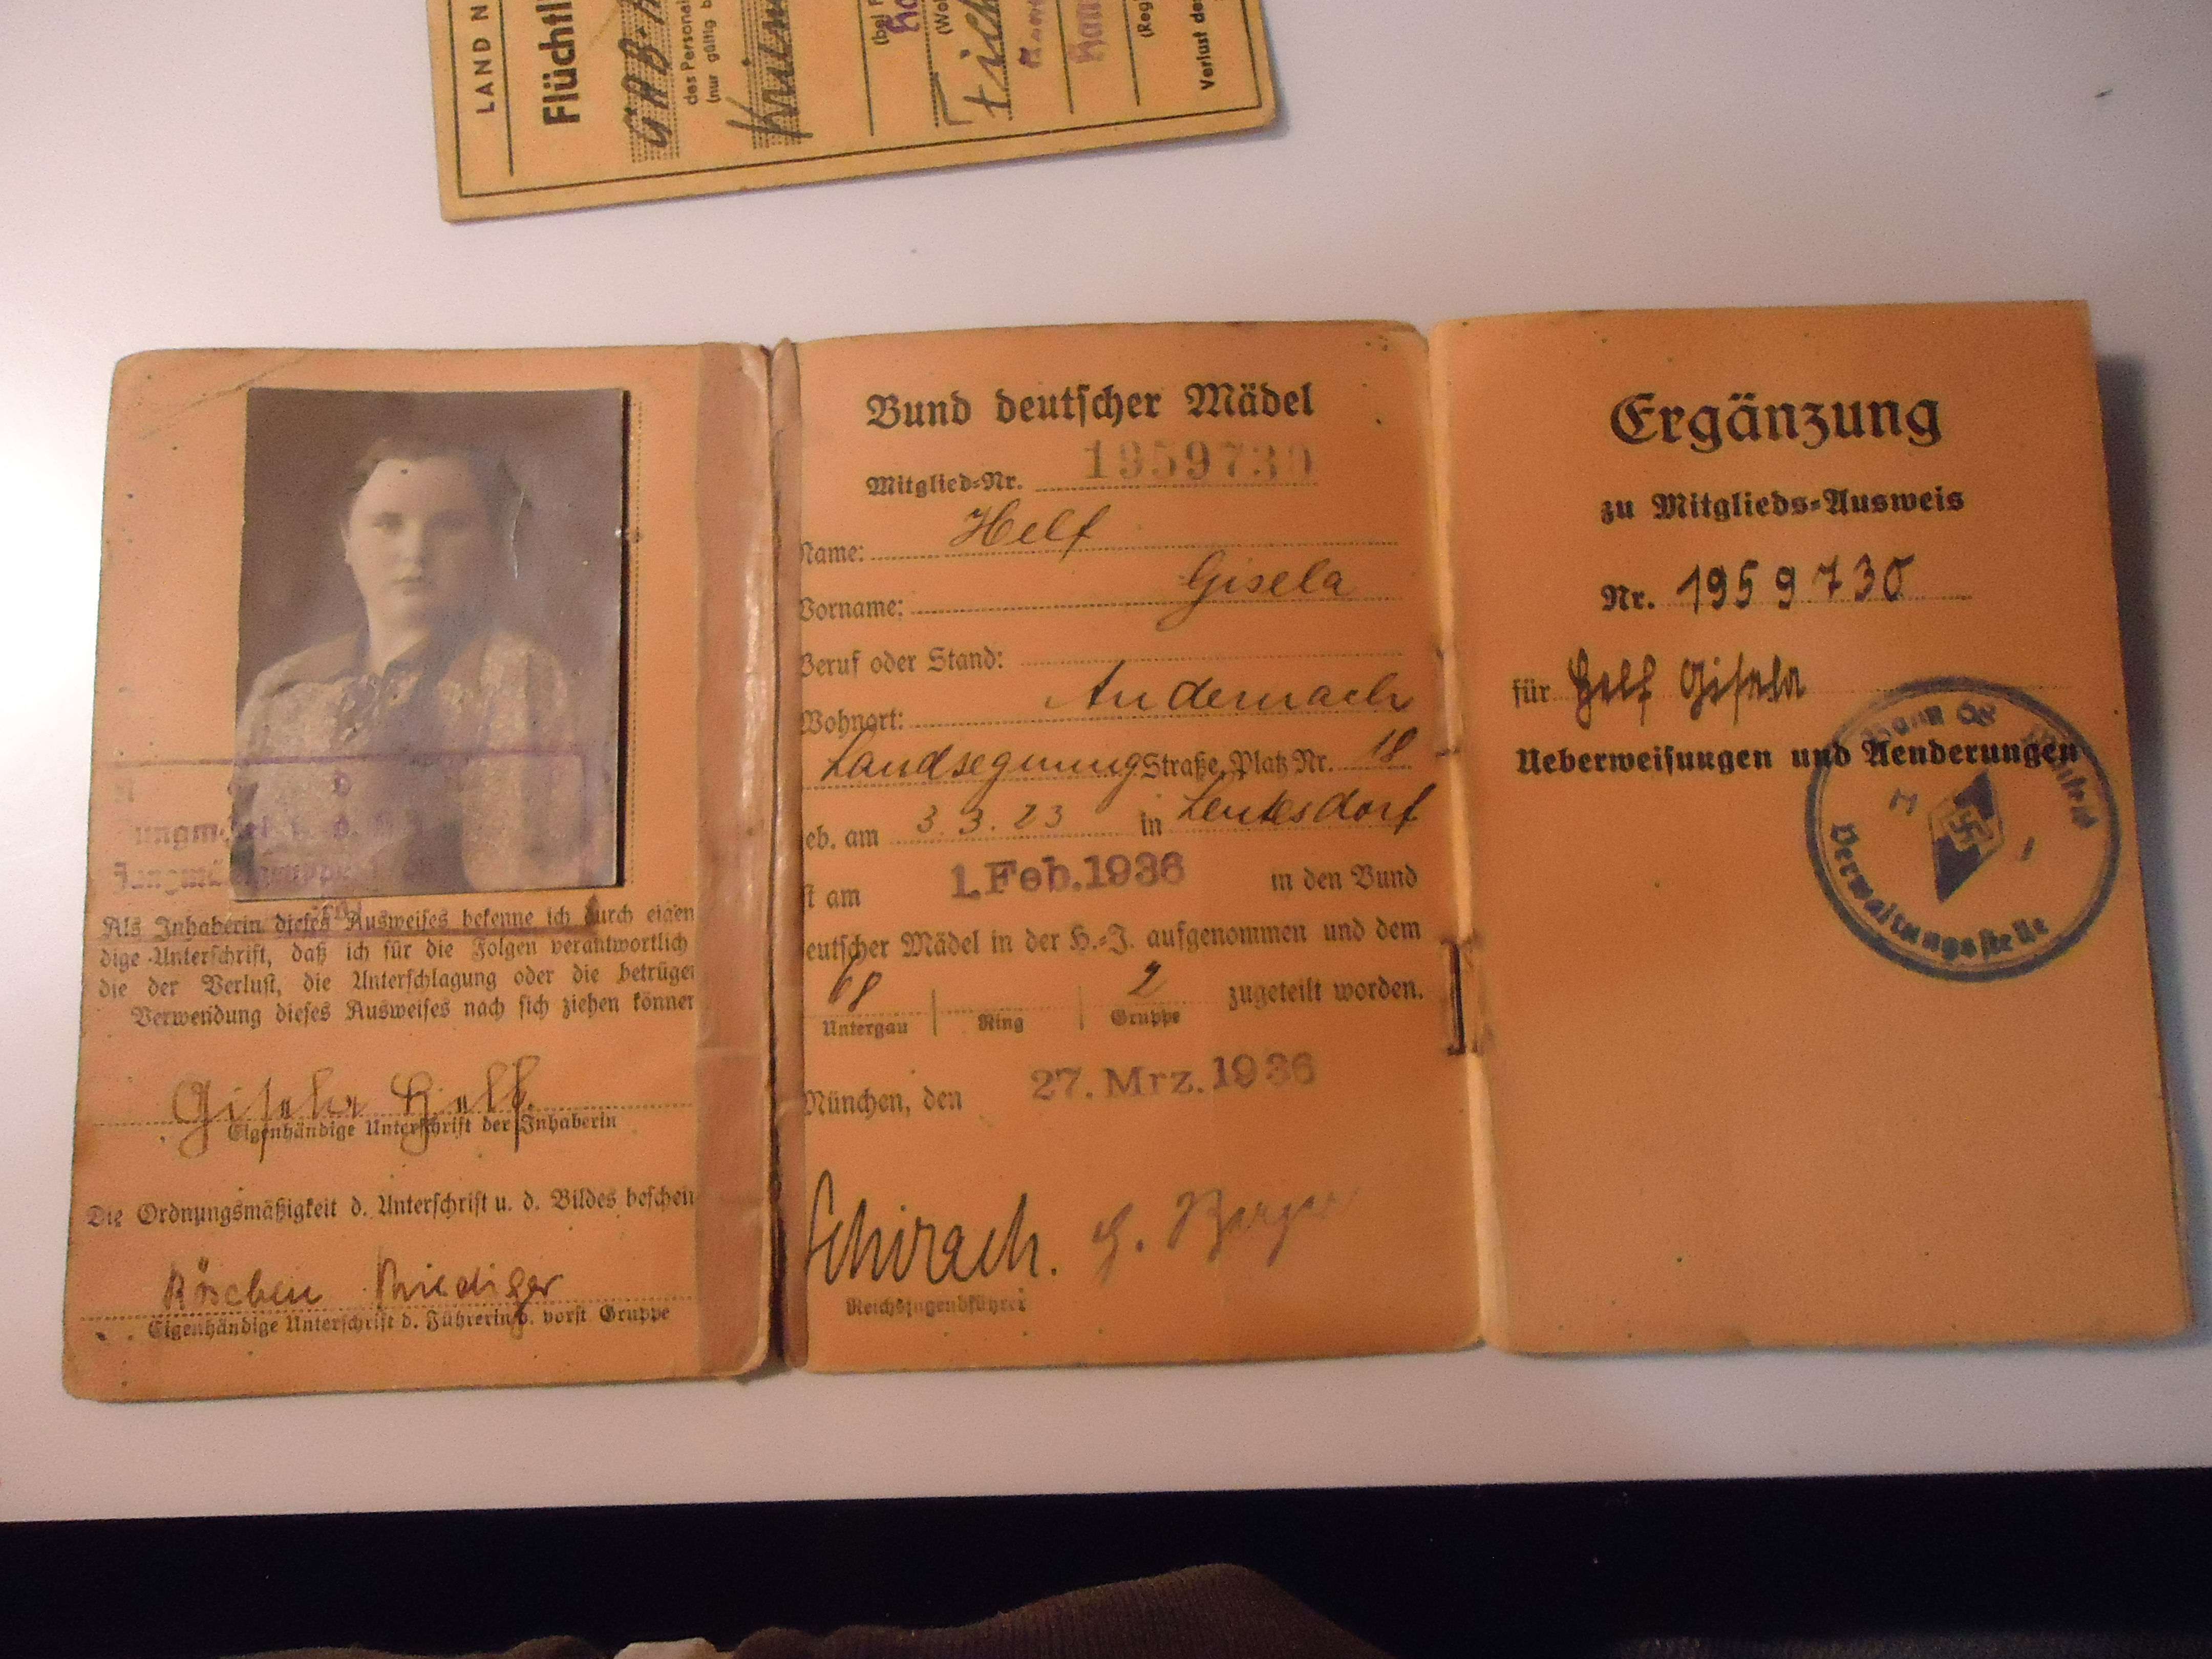 LAND N
Flüchtl
des Personal
(nur gültig b
(Reg
Verlust de
Als Inhaberin dieses Ausweises bekenne ich durch eigen
dige Unterschrift, daß ich für die Folgen verantwortlich
die der Verlust, die Unterschlagung oder die betrüger
Verwendung dieses Ausweises nach sich ziehen können
Gisela Helf
Eigenhändige Unterschrift der Inhaberin
Die Ordnungsmäßigkeit d. Unterschrift u. d. Bildes beschein
Röschen
Eigenhändige Unterschrift d. Führerin d. vorst Gruppe
Bund deutscher Mädel
Mitglied-Nr. 1959730
Name: Helf
Vorname: Gisela
Beruf oder Stand:
Wohnort: Andernach
Straße, Platz Nr. 18
eb. am 3.3.23 in Leutesdorf
st am 1. Feb. 1936 in den Bund
eutscher Mädel in der H.-J. aufgenommen und dem
68 2 zugeteilt worden.
Untergau Ring Gruppe
München, den 27. Mrz. 1936
Schirach.
Reichsjugendführer
Ergänzung
zu Mitglieds-Ausweis
Nr. 1959730
für Helf Gisela
Ueberweisungen und Aenderungen
Bann 68
Verwaltungsstelle